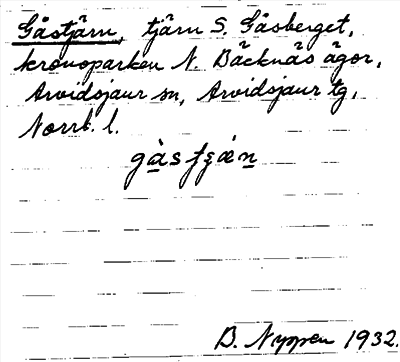 Gåstjärn, tjärn S. Gåsberget,
kronoparken N. Bäcknäs ägor,
Arvidsjaur sn, Arvidsjaur tg,
Norrb. l.
B. Nyppen 1932.